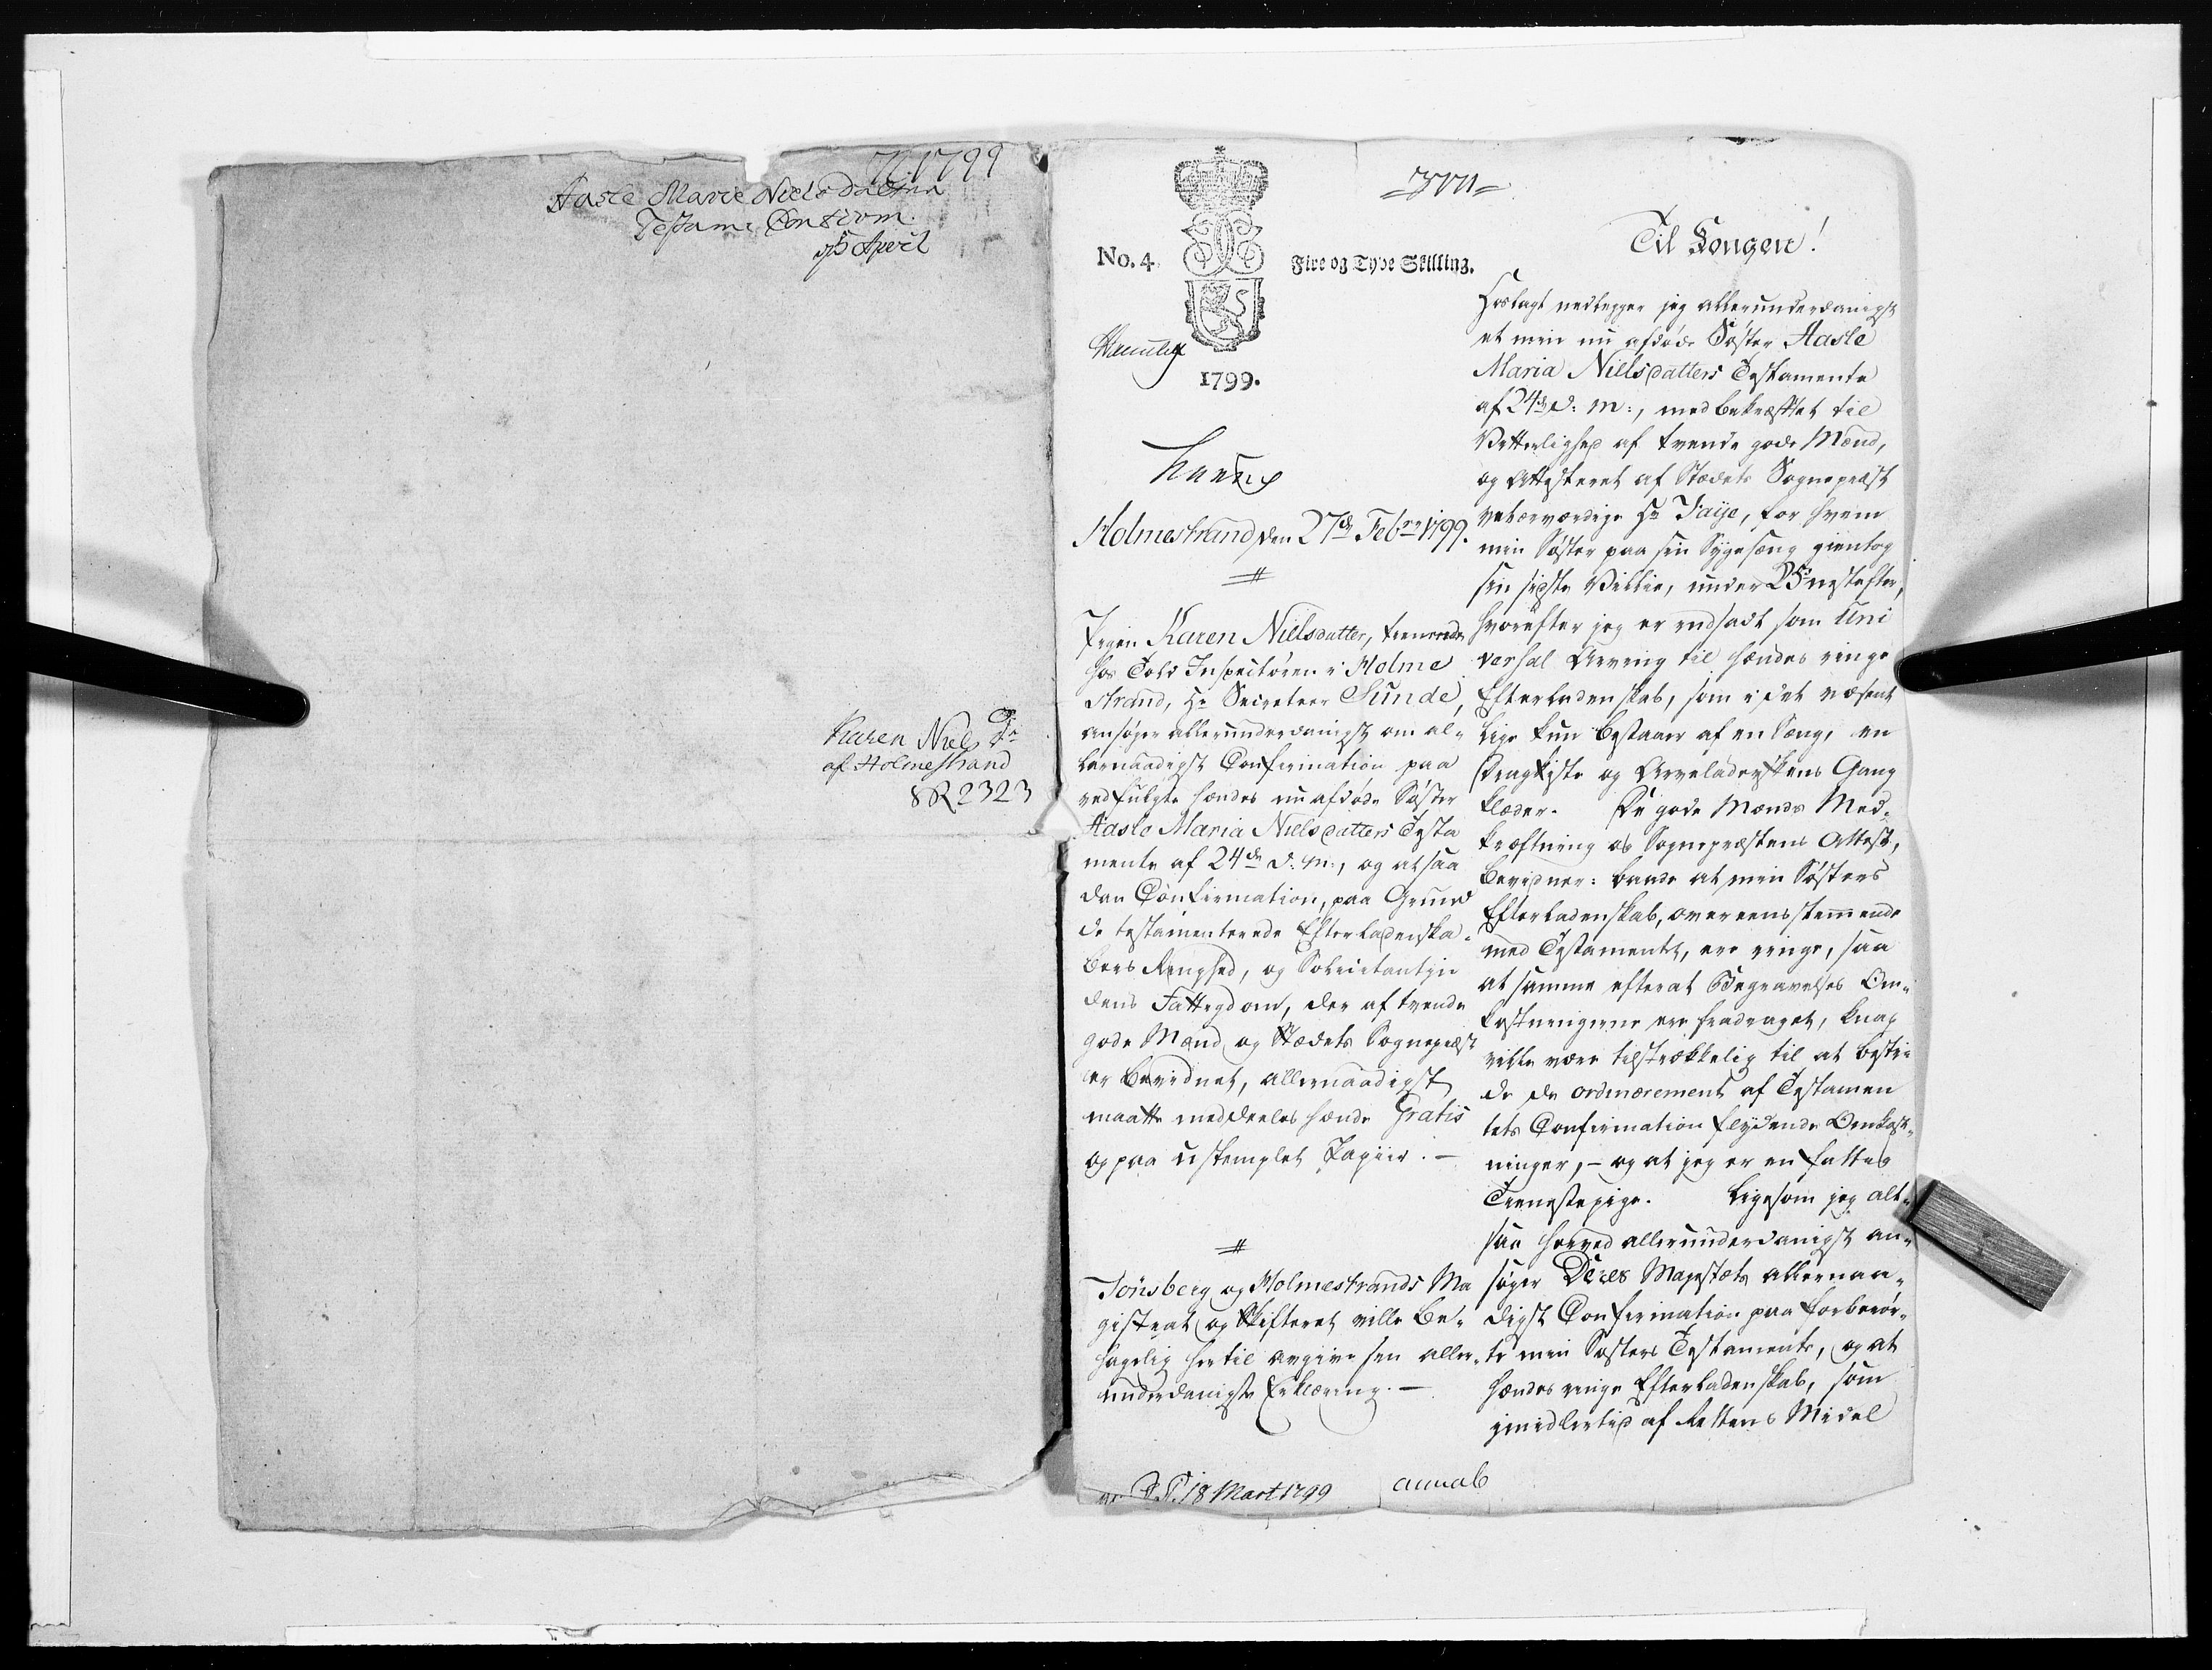 1799
Aasle Marie Nielsdatters
Testam: Confirm.
d 5 April
Karen Niels Dr
af Holmestrand
8 R 2323
No. 4
Fire og Tyve Skilling.
1799.
Holmestrand den 27de Febr: 1799.
Pigen Karen Nielsdatter, tienende
hos Told Inspectören i Holme
strand, Hr Secreteer Sunde,
ansöger allerunderdanigst om al-
lernaadigst Confirmation paa
vedfulgte hendes nu afdöde Söster
Aasle Maria Nielsdatters Testa
mente af 24de d: m:, og at saa
dan Confirmation, paa Grund
de testamenterede Efterladenska-
bers Ringhed, og Solicitantin
dens Fattigdom, der af tvende
gode Mænd og Stædets Sognepræst
er bevidnet, allernaadigst
maatte meddeeles hende Gratis
og paa ustemplet Papiir. -
Tönsberg og Holmestrands Ma
gistrat og Skifteret ville be-
hagelig hertil avgive sin aller-
underdanigste Erklæring. -
P. T. 18 Mart 1799
Til Kongen!
Hoslagt nedlegger jeg allerunderdanigst
et min nu afdöde Söster Aasle
Maria Nielsdatters Testamente
af 24de d: m:, medbekræftet til
Vitterlighed af tvende gode Mænd,
og Attesteret af Stædets Sognepræst
Velærværdige Hr Jaije, for hvem
min Söster paa sin Sygeseng gientog
sin sidste Villie, under 25 nestefter,
hvorefter jeg er indsadt som Uni
versal Arving til hendes ringe
Efterladenskab, som i det væsent
lige kun bestaaer af en Seng, en
Dragkiste og Arveladerskens Gang
klæder. De gode Mænds Med-
kræftning og Sognepræstens Attest,
bevidner: baade at min Sösters
Efterladenskab, overeensstemmende
med Testamentet, ere ringe, saa
at samme efterat Begravelses Om-
kostningerne ere fradraget, knap
ville være tilstrækkelig til at bestri-
de de ordinærement af Testamen
tets Confirmation flydende Omkost-
ninger, - og at jeg er en fattig
Tienestepige. Ligesom jeg alt-
saa herved allerunderdanigst an-
söger Deres Majestæts allernaa-
digst Confirmation paa forberör-
te min Sösters Testamente, og at
hendes ringe Efterladenskab, som
imidlertid af Rettens Middel